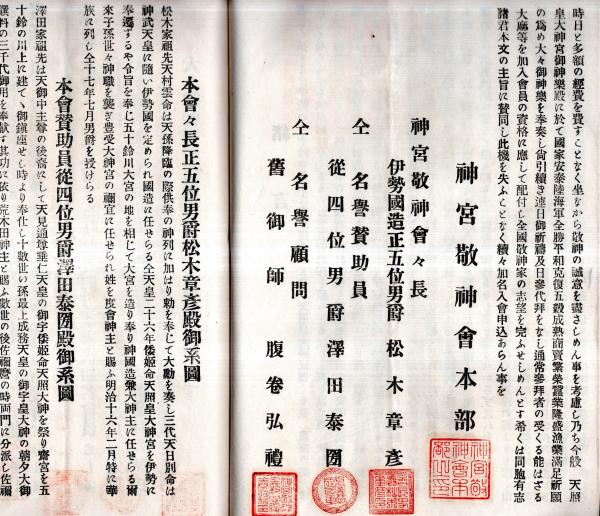 時日と多額の經費を費すことなく坐ながら敬神の誠意を盡さしめん事を考慮し乃ち今般　天照
皇大神宮御神樂殿に於て國家安泰陸海軍全勝平和克復五穀成熟商賣繁榮蠶業隆盛漁樂滿足祈願
の爲め大々御神樂を奉奏し尙引續き連日御祈禱及日參代拜をなし通常參拜者の受くる能はざる
大麻等を加入會員の資格に應して配付し全國敬神家の志望を完ふせしめんとす希くは同胞有志
諸君本文の主旨に賛同し此機を失ふことなく續々加名入會申込あらん事を
神宮敬神會本部
神宮敬神會々長
伊勢國造正五位男爵　松木章彦
仝　名譽賛助員
從四位男爵　澤田泰圀
仝　名譽顧問
舊御師　腹卷弘禮
本會々長正五位男爵松木章彦殿御系圖
松木家祖先天村雲命は天孫降臨の際供奉の神列に加はり勅を奉じて大勳を奏し三代天日別命は
神武天皇に隨い伊勢國を定められ國造に任せらる仝天皇二十六年倭姬命天照皇大神宮を伊勢に
奉遷するや令旨を奉じ五十鈴川大宮の地を相して大宮を造り奉り神國造兼大神主に任せらる爾
來子孫世々神職を襲ぎ豐受大神宮の禰宜に任せられ姓を度會神主と賜ふ明治十六年二月特に華
族に列し仝十七年七月男爵を授けらる
本會賛助員從四位男爵澤田泰圀殿御系圖
澤田家祖先は天御中主尊の後裔にして天見通尊垂仁天皇の御宇倭姬命天照大神を祭り齋宮を五
十鈴の川上に建てゝ御鎭座せし時より奉仕し十數世の孫最上成務天皇の御宇皇大神の朝夕大御
饌料の三千代御用を奉獻す其功に依り荒木田神主と賜ふ數世の後佐禰麿の時兩門に分派し佐禰